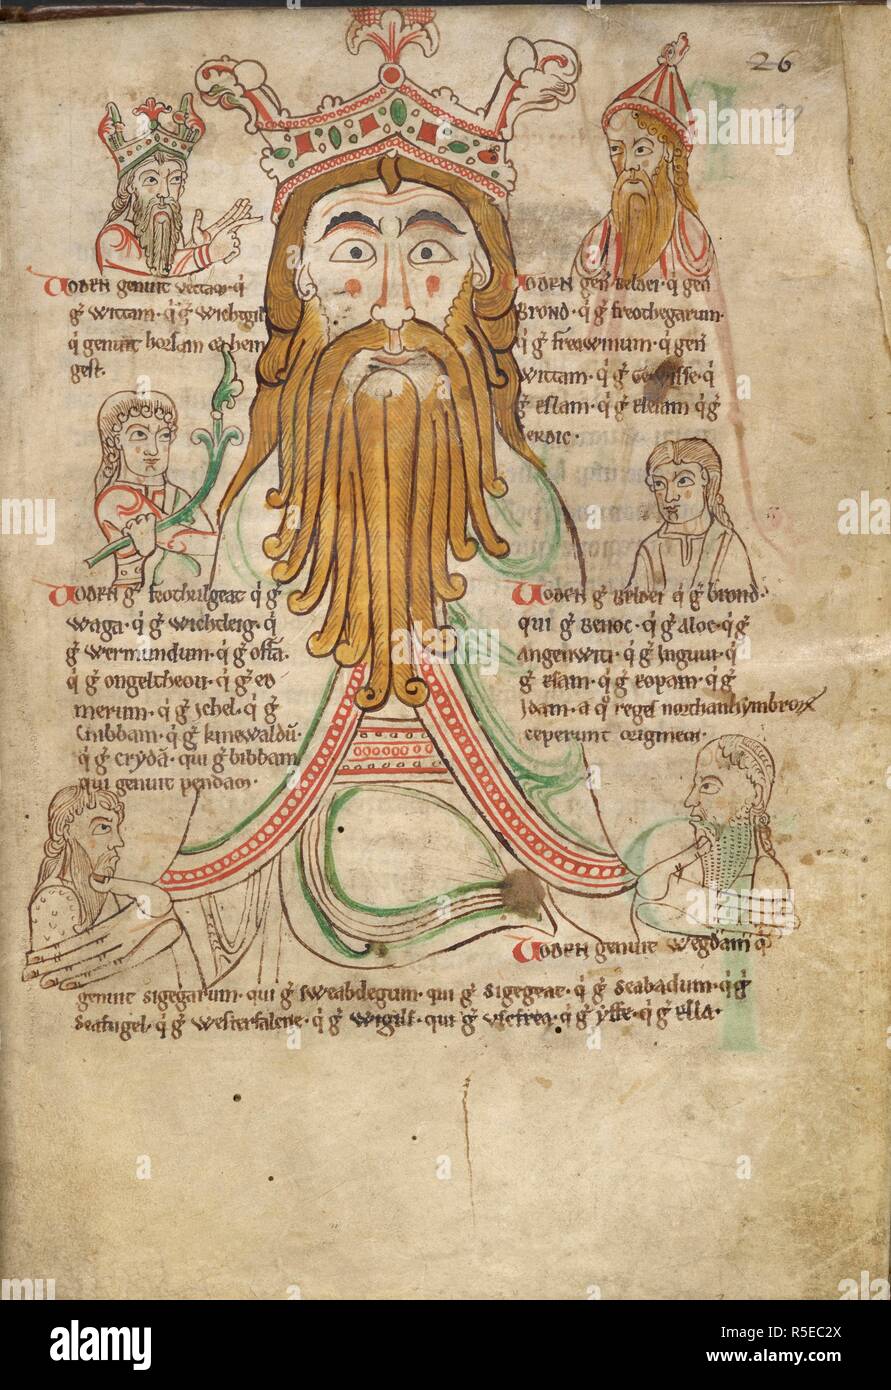 26
29
Woden genuit vectam· q̇
g̃ Wittam· q̇ g̃ Wichtgil
q̇ genuit horsam et hen
gest·
Woden geñ Beldei· q̇ geñ
Brond· q̇ g̃ freothegarum·
q̇ g̃ freawinum· q̇ geñ
Wittam· q̇ g̃ Gewisse· q̇
g̃ Eslam· q̇ g̃ Eleiam q̇ g̃
Cerdic·
Woden g̃ feothulgeat q̇ g̃
waga· q̇ g̃ wichtleig· q̇
g̃ Wermundum· q̇ g̃ offã·
q̇ g̃ ongeltheou· q̇ g̃ eo
merum· q̇ g̃ ichel· q̇ g̃
Cnibbam· q̇ g̃ kinewaldũ·
q̇ g̃ crydã· qui g̃ bibbam
qui genuit pendam·
Woden g̃ Beldei q̇ g̃ brond·
qui g̃ Benoc· q̇ g̃ Aloc· q̇ g̃
Angenwiti· q̇ g̃ Inguui· q̇
g̃ Esam· q̇ g̃ Eopam· q̇ g̃
Idam· a q̊ reges northanhymbrorum
ceperunt originem·
Woden genuit Wegdam q̇
genuit sigegarum· qui g̃ sweabdegum· qui g̃ sigegeat· q̇ g̃ seabadum· q̇ g̃
seafugel· q̇ g̃ westerfalcne· q̇ g̃ wigils· qui g̃ uscfrea· q̇ g̃ yffe· q̇ g̃ Ella·
alamy
Image ID: R5EC2X
www.alamy.com